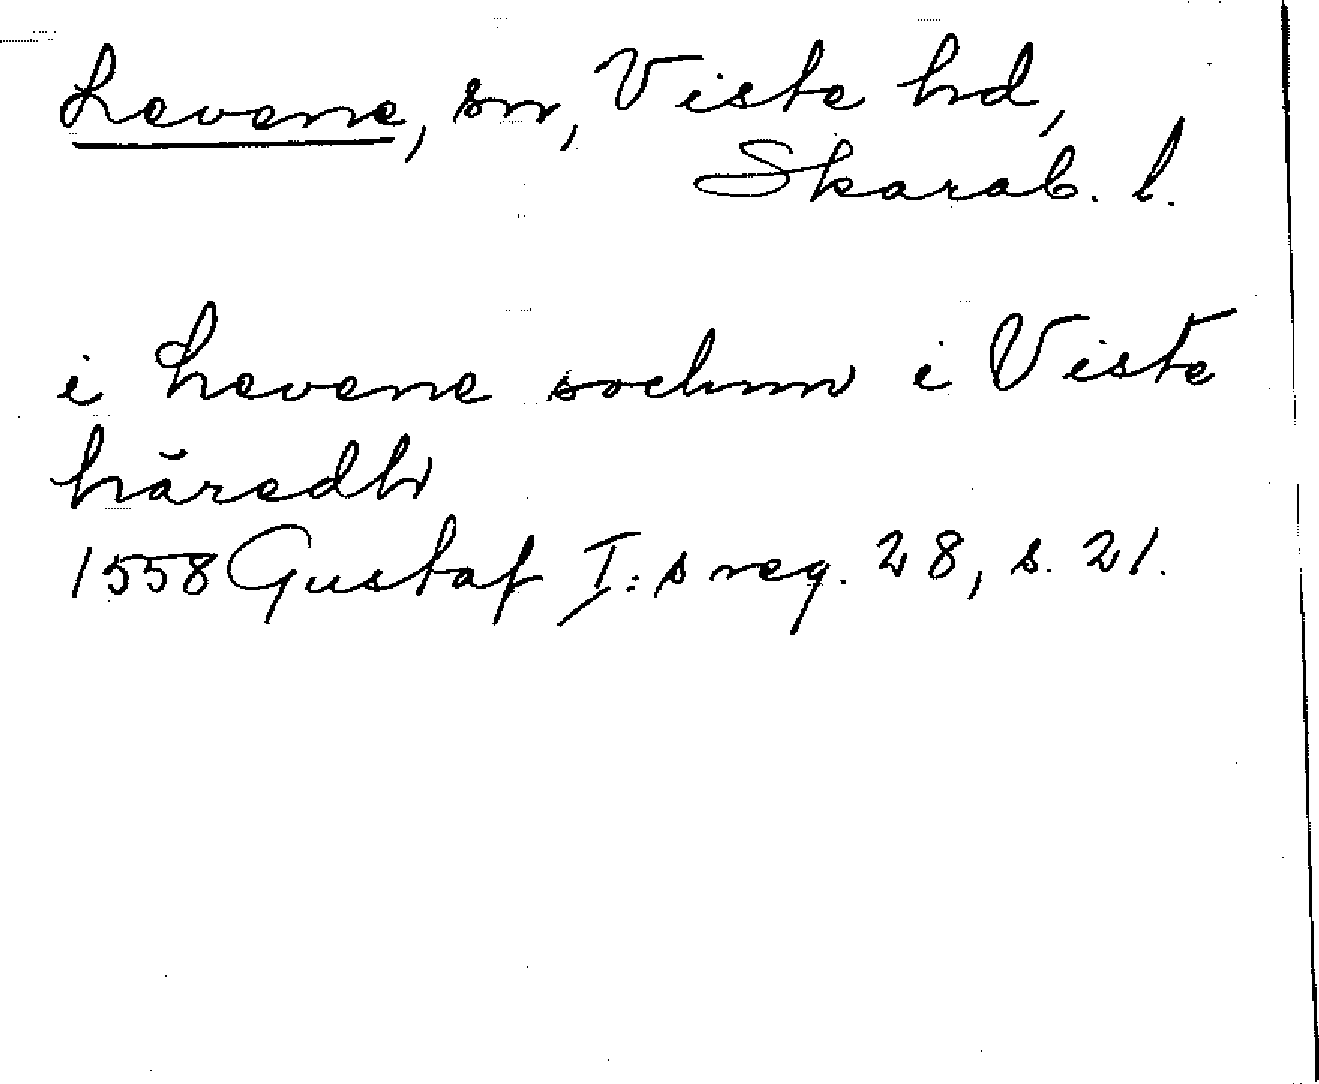 Levene, sn, Viste hd,
Skarab. l.
i Levene sochnn i Viste
häredh
1558 Gustaf I:s reg. 28, s. 21.